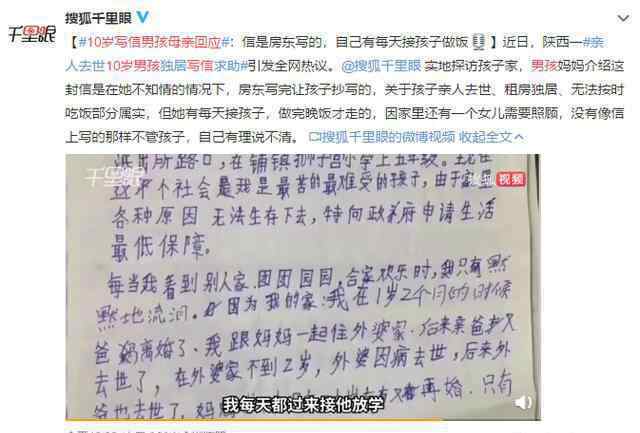 搜狐千里眼
千里眼
【#10岁写信男孩母亲回应#：信是房东写的，自己有每天接孩子做饭🎙】近日，陕西一#亲
人去世10岁男孩独居写信求助#引发全网热议。@搜狐千里眼 实地探访孩子家，男孩妈妈介绍这
封信是在她不知情的情况下，房东写完让孩子抄写的，关于孩子亲人去世、租房独居、无法按时
吃饭部分属实，但她有每天接孩子，做完晚饭才走的，因家里还有一个女儿需要照顾，没有像信
上写的那样不管孩子，自己有理说不清。 搜狐千里眼的微博视频 收起全文
千里眼
派出所路口，在铺镇狮子营小学上五年级。
这个社会是我是最苦的最难受的孩子，由于
视频
各种原因 无法生存下去，特向政府申请生活
最低保障。
每当我看到别人家团团园园，合家欢乐时，我只有黙
黙地流泪。因为我的家：我在1岁2个月的时候
爸妈离婚了、我跟妈妈一起住外婆家.后来亲爸爸又
去世了，在外婆家不到2岁，外婆因病去世，后来外
爷也去世了，妈妈
再婚.只有
我每天都过来接他放学